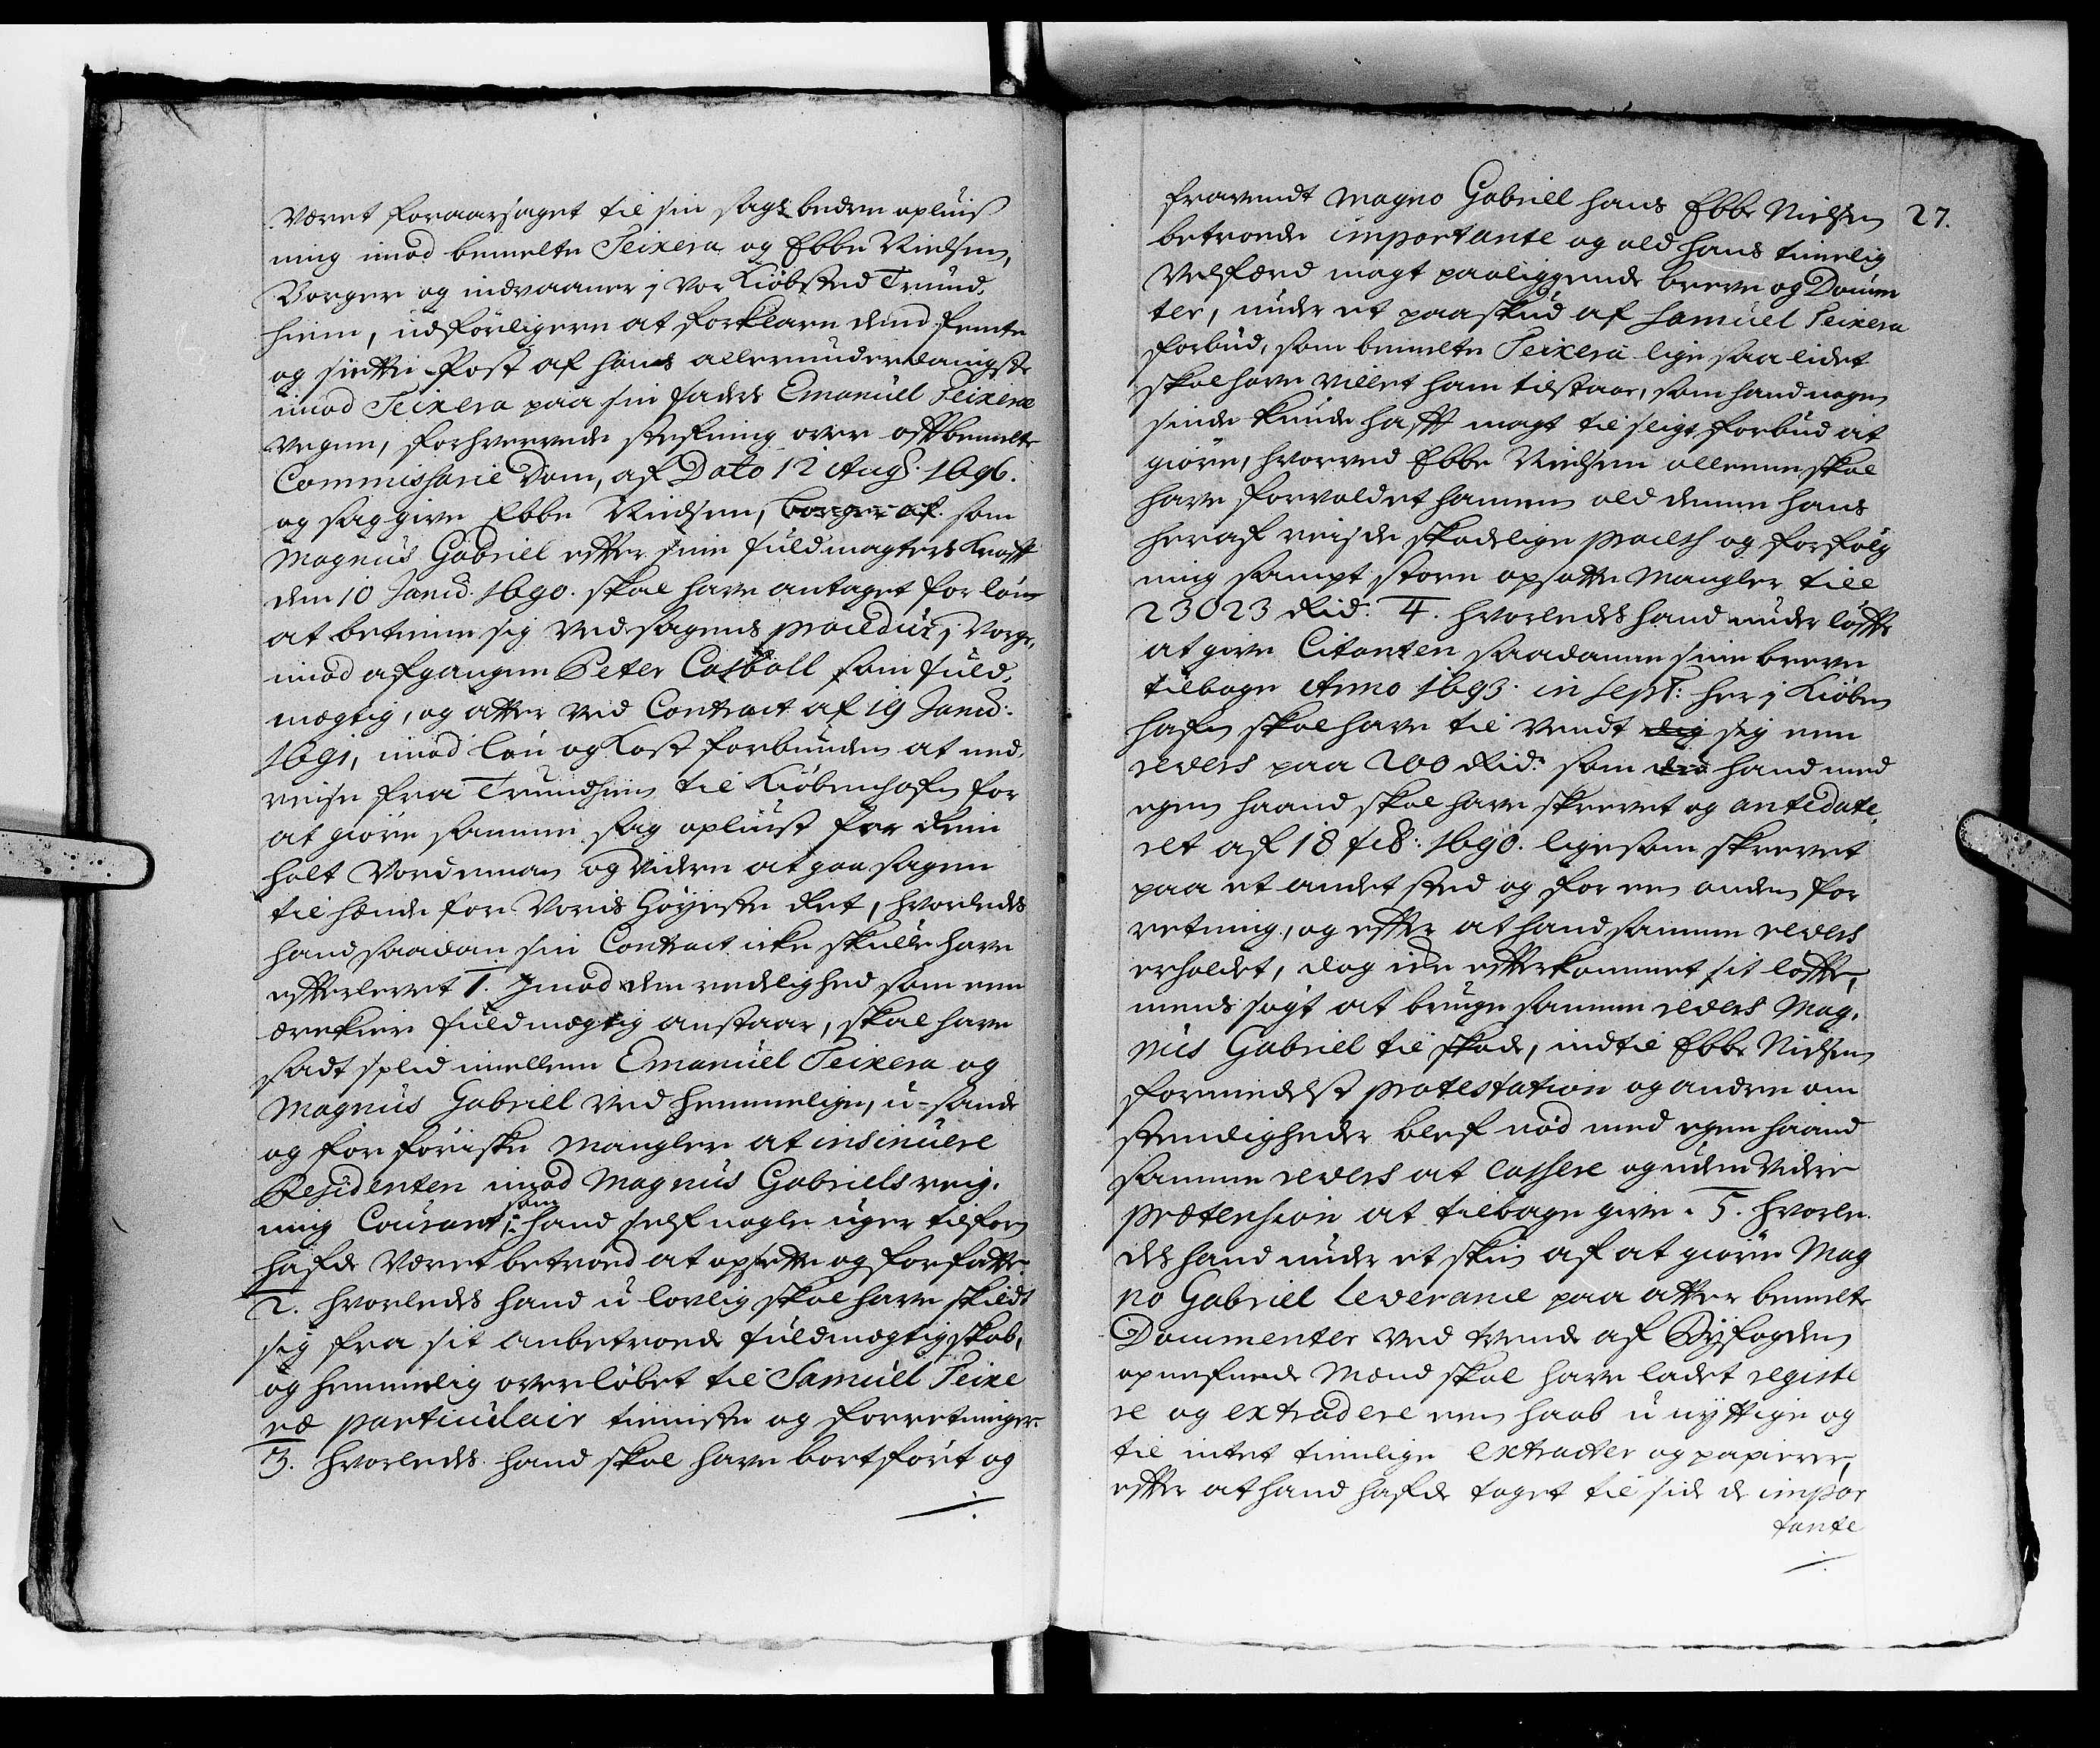 Været foraarsaget til sin sags bedre opliuß
ning imod bemelte Teixera og Ebbe Nielsen,
Borger og indvaaner j Vor Kiøbsted Trund,
hiem, udførligere at forklare dend femte
og siette Post af hans allerunderdanigste
imod Teixera paa sin faders Emanuel Teixeræ
vegne, forhvervede stefning over oftbemelte
Commissarie Dom, af Dato 12 Augs. 1696.
og sag give Ebbe Nielsen, borger af som
Magnus Gabriel efter sine fuldmagters Krafft
den 10 Janu. 1690. skal have antaget for løn
at betiene sig ved sagens procedur j Norge,
imod afgangne Peter Casboll som fuld,
mægtig, og atter ved Contract af 19 Janu.
1691, imod løn og kost forbunden at ned,
reise fra Trundhiem til Kiøbenhafn for
at giøre samme sag opliust for dem
holt Vordemman og videre at gaa sagen
til hænde for Voris Høyeste Ret, hvorledes
hand saadan sin Contract icke skulle have
efterlevet 1. Jmod den redelighed som een
ærekier fuldmægtig anstaar, skal have
sadt splid imellem Emanuel Teixera og
Magnus Gabriel ved hemmelige, u-sande
og for føriske Mangler at insinuere
Residenten imod Magnus Gabriels reig,
ning Courant, som hand self nogle uger tilforn
hafde Været betroed at opsette og forfatte
2. hvorledes hand u lovlig skal have skildt
sig fra sit anbetroede fuldmægtigskab,
og hemmelig overløbet til Samuel Teixe
ræ particulair tienniste og forretninger.
3. hvorledes hand skal have bortført og

27.
fravendt Magno Gabriel hans Ebbe Nielsen
betroede importante og ald hans timelig
Velfærd magt paaliggende breve og Docum
ter, under et paaskud af Samuel Teixera
forbud, som bemelte Teixera lige saa lidet
skal have villet ham tilstaae, som hand nogen
sinde kunde hafft magt til slig forbud at
giøre, hvorved Ebbe Nielsen alleene skal
have forvoldet hannem ald denne hans
heraf reisde skadelige process og forfølg
ning sampt store opsatte Mangler till
23023 Rid. 4. hvorledes hand under løffte
at give Citanten saadanne sine breve
tilbage Anno 1693. in Sept: her j Kiøben
hafn skal have til vendt dig sig een
revers paa 200 Rid. som hand med
egen haand skal have skrevet og antidate,
ret af 18 feb: 1690. ligesom skrevet
paa et andet sted og for een anden for
retning, og efter at hand samme revers
erholdet, dog icke efterkommet sit løffte,
mens søgt at bruge samme revers Mag,
nus Gabriel til skade, indtil Ebbe Nielsen
formedelst protestation og andre om
stendigheder blef nød med egen haand
samme revers at cassere og uden videre
prætension at tilbage give. 5. hvorle
des hand under et skin af at giøre Mag
no Gabriel leverance paa atter bemelte
Documenter ved tvende af Byfogden
opnefnede Mænd skal have ladet registe
re og extradere een haab u nyttige og
til intet tienlige extracter og papierer,
efter at hand hafde taget til side de impor
tante